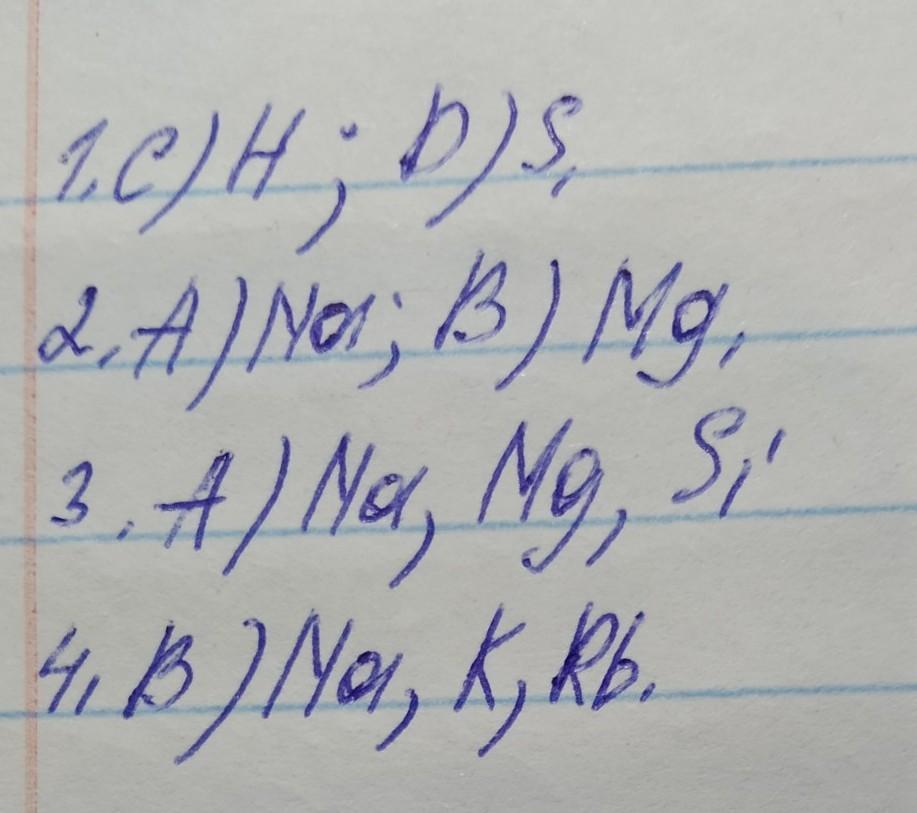 1. C) H; D) S.
2. A) Na; B) Mg.
3. A) Na, Mg, Si
4. B) Na, K, Rb.